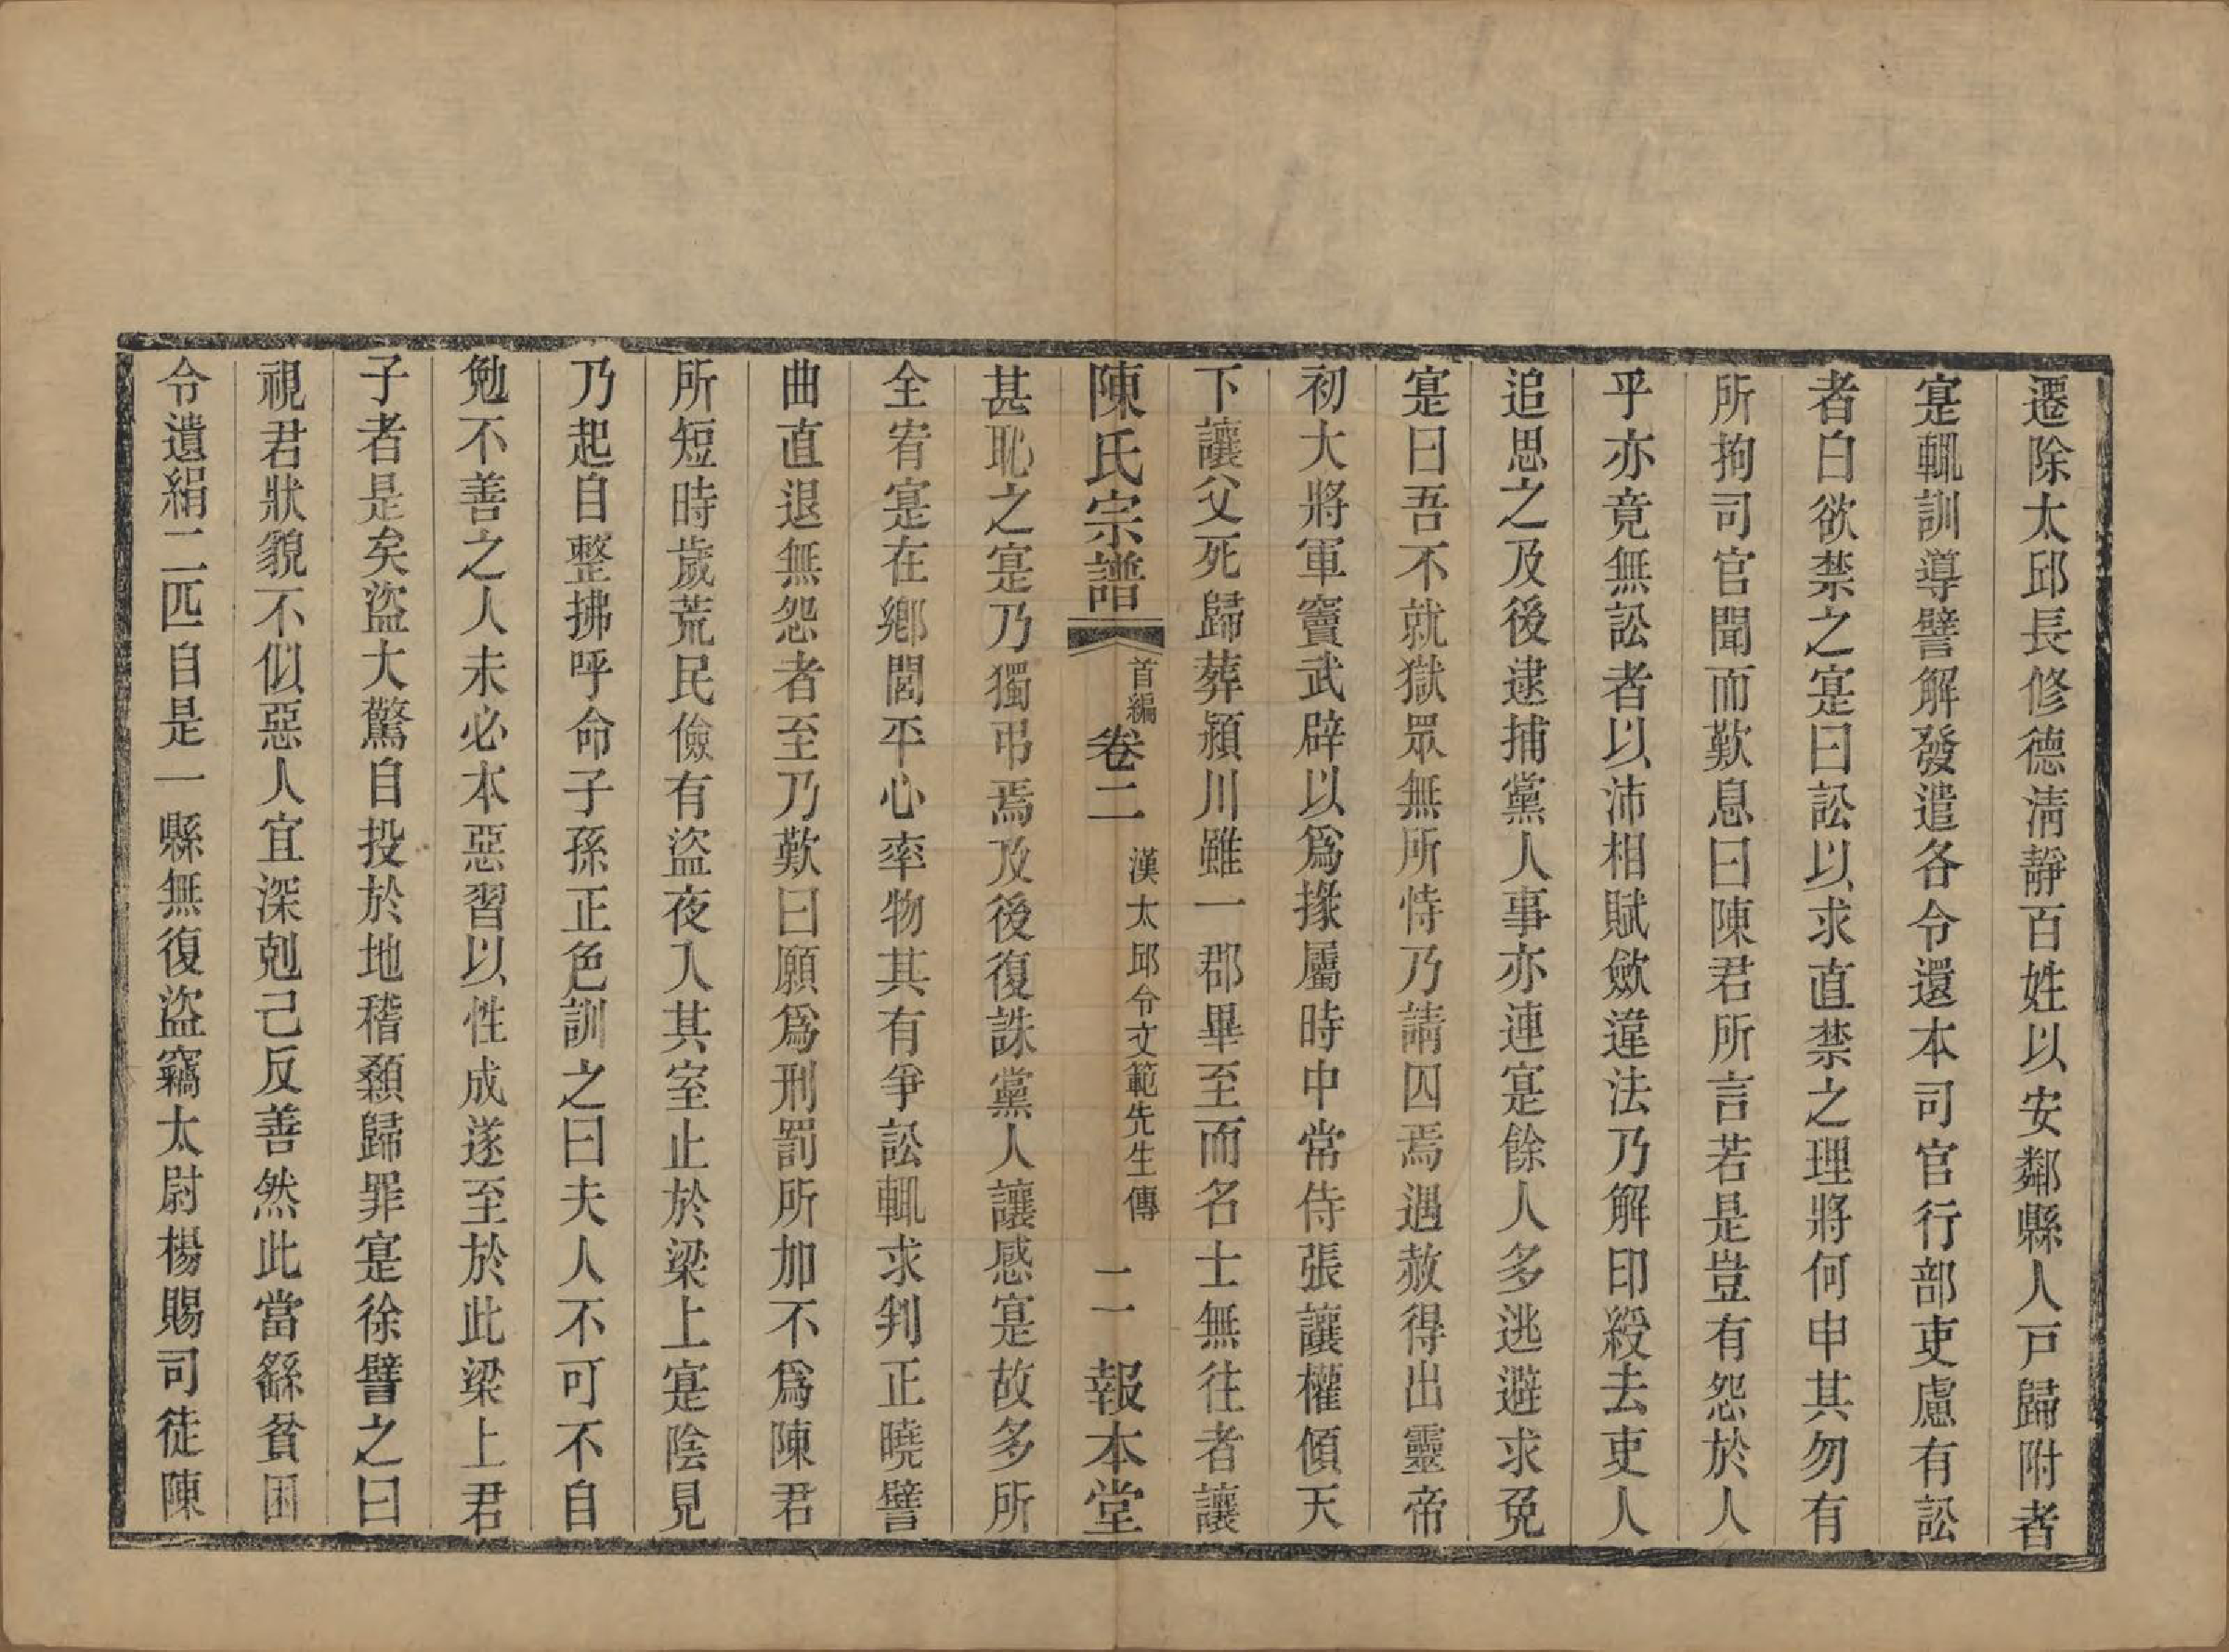 遷除太邱長修德淸靜百姓以安鄰縣人戸歸附者
寔輒訓導譬解發遣各令還本司官行部吏慮有訟
者白欲禁之寔曰訟以求直禁之理將何申其勿有
所拘司官聞而歎息曰陳君所言若是豈有怨於人
乎亦竟無訟者以沛相賦斂違法乃解印綬去吏人
追思之及後逮捕黨人事亦連寔餘人多逃避求免
寔曰吾不就獄眾無所恃乃請囚焉遇赦得出靈帝
初大將軍竇武辟以爲掾屬時中常侍張讓權傾天
下讓父死歸葬潁川雖一郡畢至而名士無往者讓
陳氏宗譜 首編 卷二 漢太邱令文範先生傳 二 報本堂
甚恥之寔乃獨弔焉及後復誅黨人讓感寔故多所
全宥寔在鄉閭平心率物其有爭訟輒求判正曉譬
曲直退無怨者至乃歎曰願爲刑罰所加不爲陳君
所短時歲荒民儉有盜夜入其室止於梁上寔陰見
乃起自整拂呼命子孫正色訓之曰夫人不可不自
勉不善之人未必本惡習以性成遂至於此梁上君
子者是矣盜大驚自投於地稽顙歸罪寔徐譬之曰
視君狀貌不似惡人宜深剋己反善然此當繇貧困
令遺絹二匹自是一縣無復盜竊太尉楊賜司徒陳